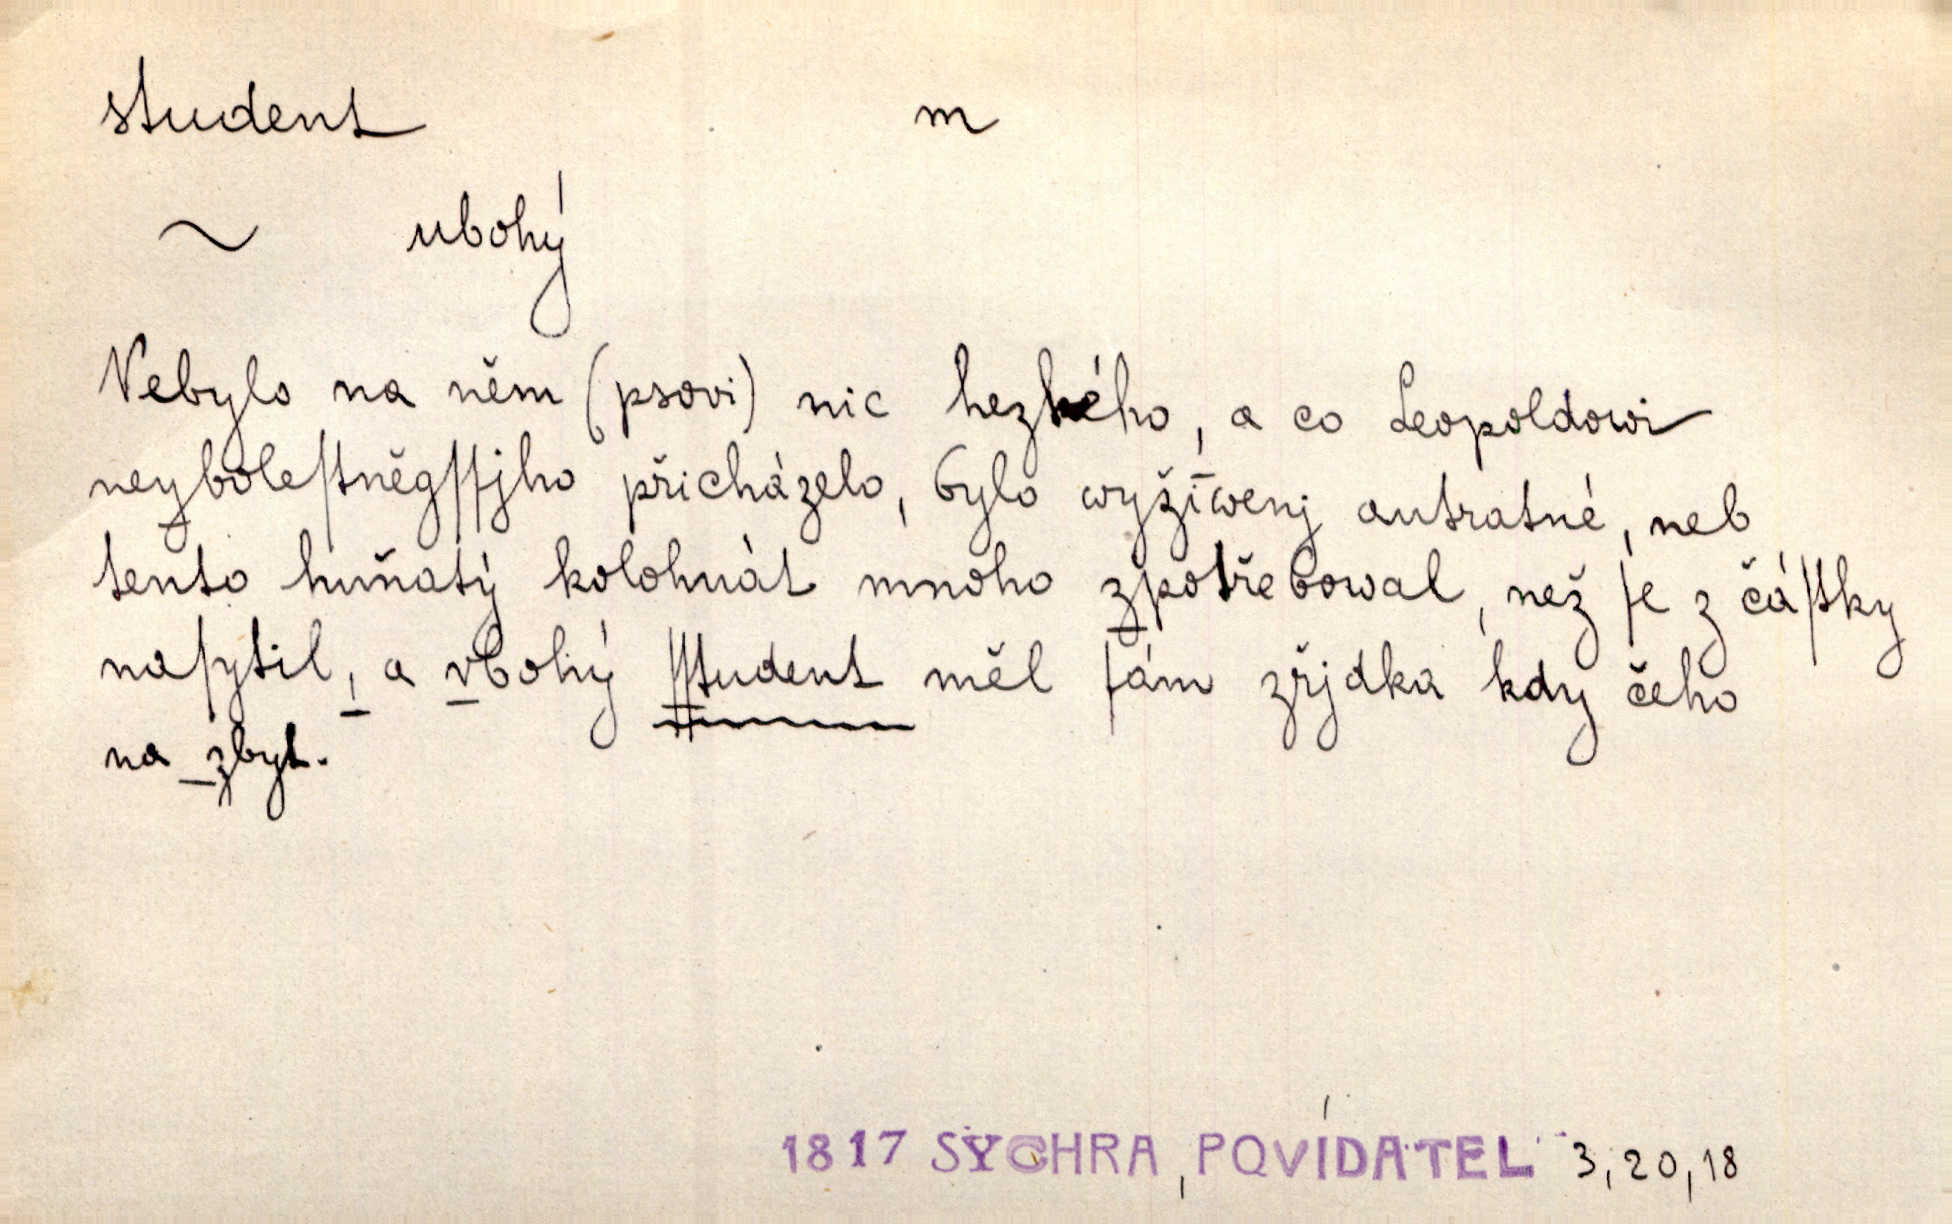 student m
~ ubohý
Nebylo na něm (psovi) nic hezkého, a co Leopoldowi
neyboleſtněgſſjho přicházelo, bylo wyžiwenj autratné, neb
tento huňatý kolohnát mnoho zpotřebowal, než ſe z čáſtky
naſytil, a vbohý Sſtudent měl ſám zřjdka kdy čeho
na zbyt.
1817 SYCHRA, POVÍDATEL 3, 20, 18